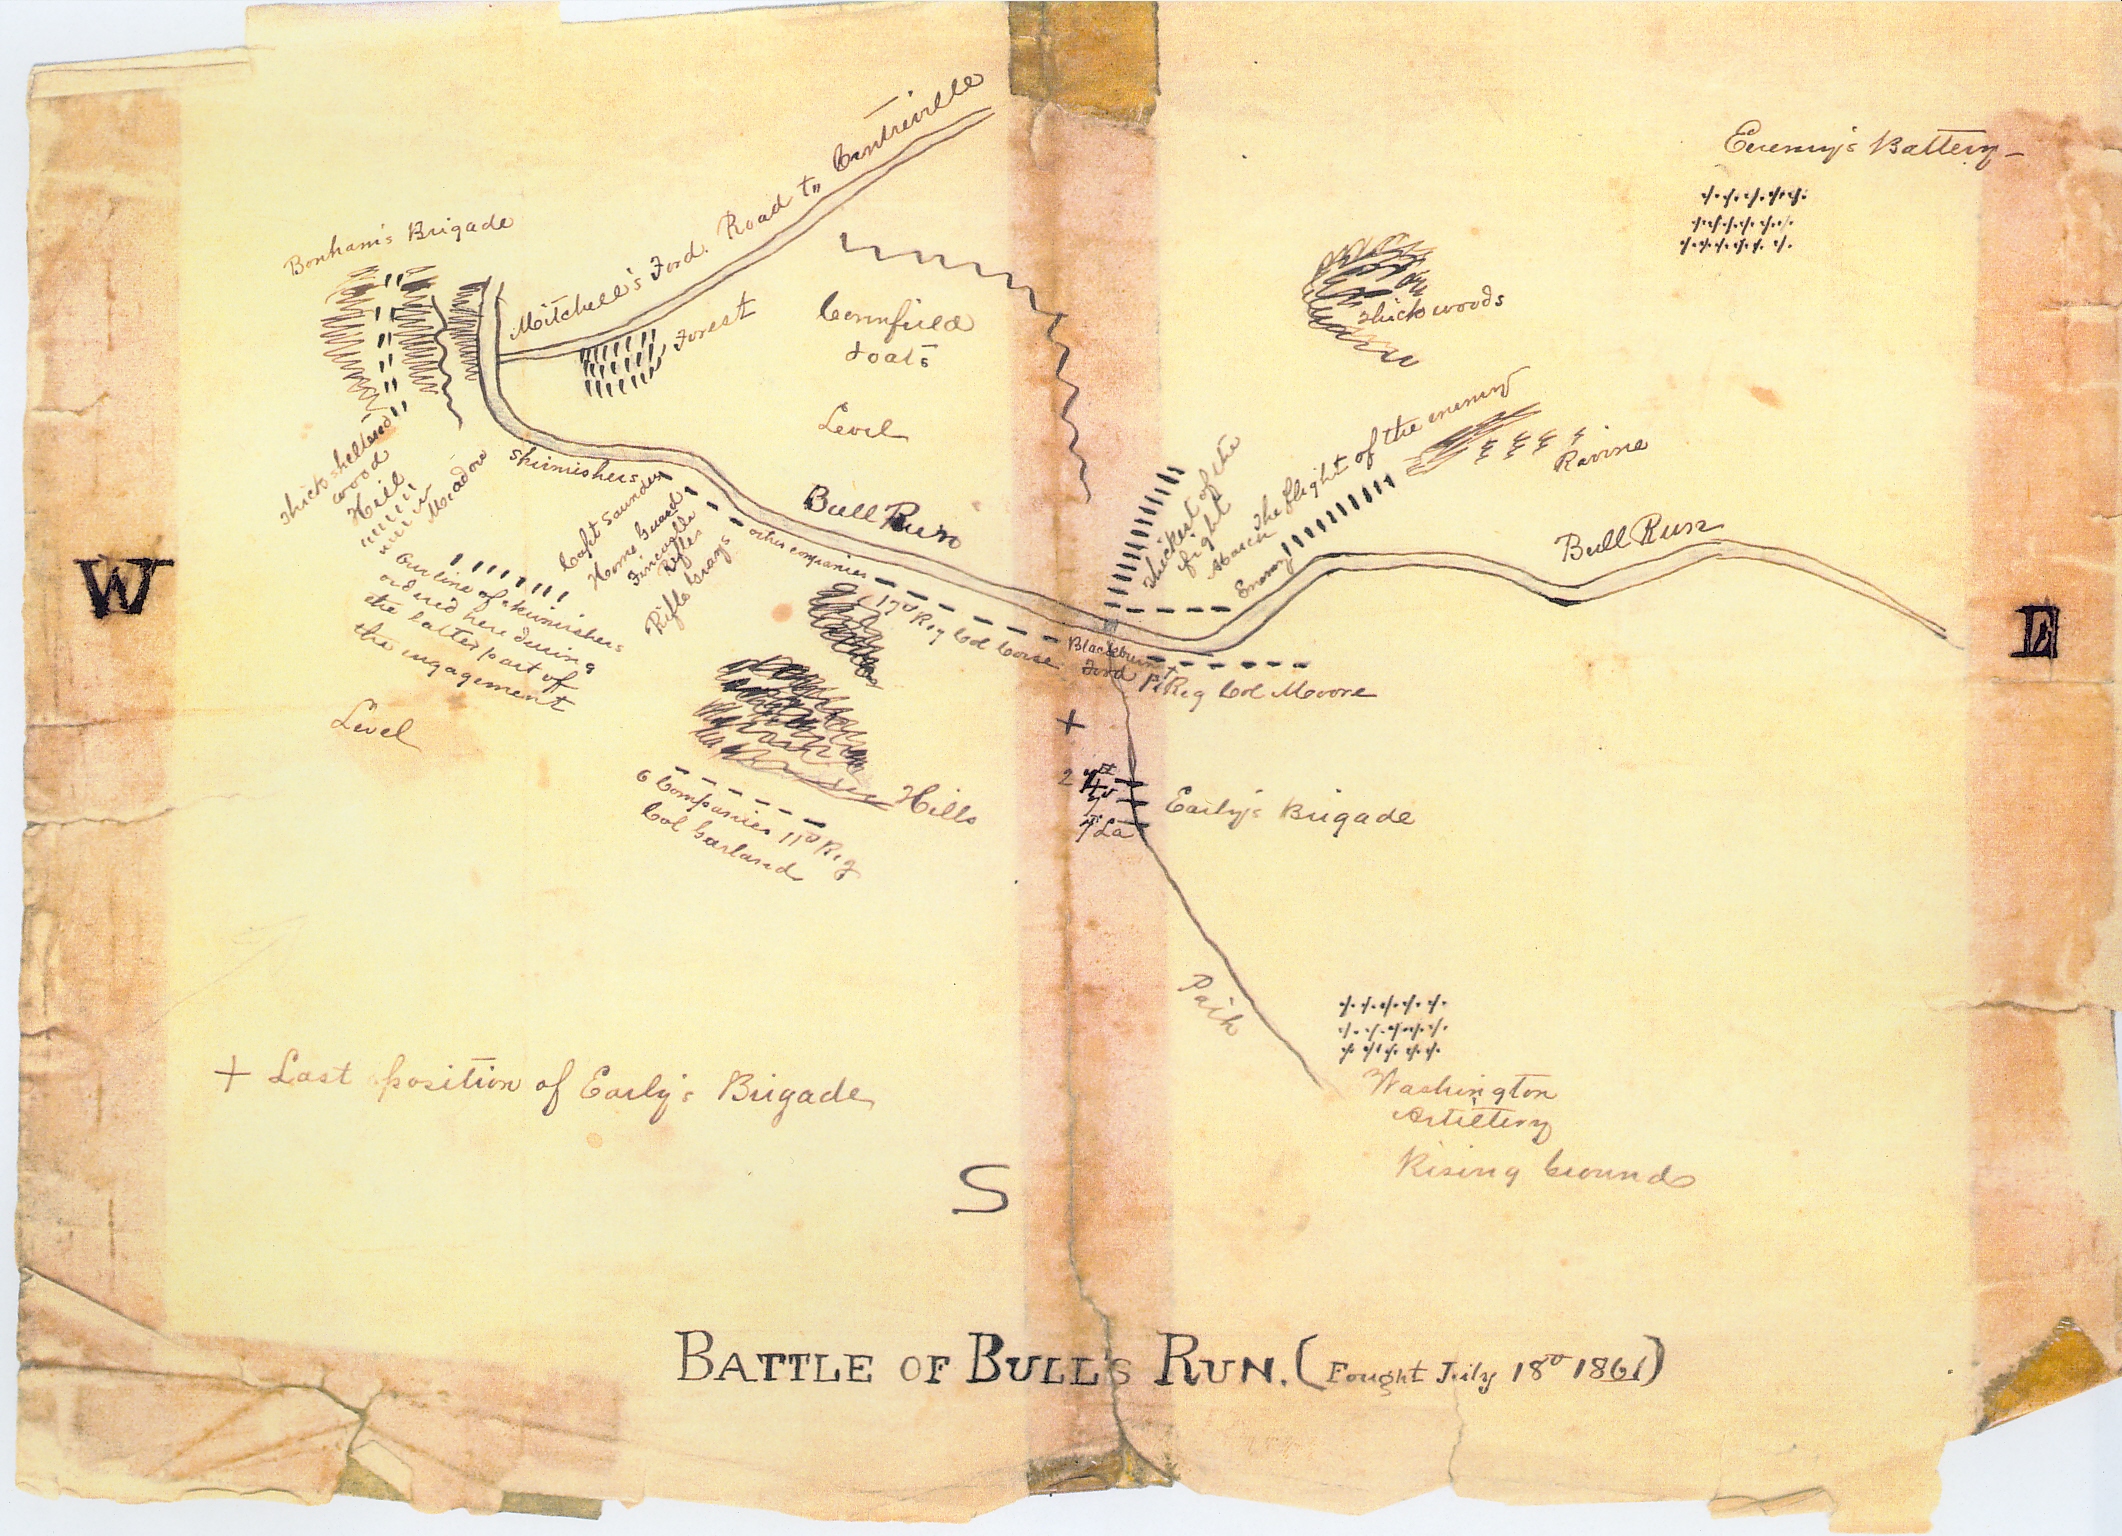 Enemy's Battery
Bonham's Brigade
Mitchell's Ford. Road to Centreville
Forest
Cornfield
&oats
Level
Thick woods
Thickest of the
fight
March The flight of the enemy
Enemy
Ravine
Bull Run
Bull Run
Thick
wood
Hill
Meadow
Skirmishers
Capt Saunders
Home Guard
Rifles
Rifle Grays
other companies
17th Reg Col Corse
Blackburn
Ford
1st Reg Col Moore
Our line of skirmishers
ordered here during
the latter part of
the engagement
Level
Hills
6 Companies 11th Reg
Col Garland
+
7th La
Early's Brigade
W
E
Path
Washington
Artillery
Rising Ground
+ Last position of Early's Brigade
S
BATTLE OF BULL'S RUN. (Fought July 18th 1861)